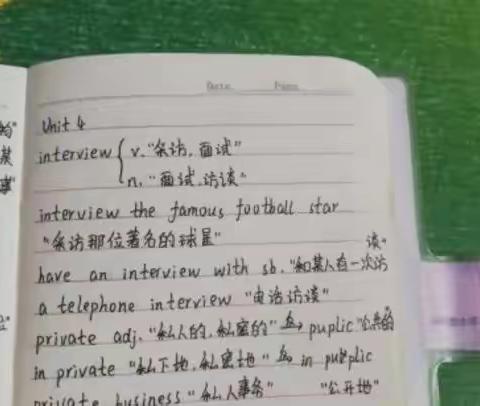 Date
Unit 4
interview { v. "采访, 面试"
n. "面试, 访谈"
interview the famous football star
"采访那位著名的球星"
have an interview with sb. "和某人有一次访谈"
a telephone interview "电话访谈"
private adj. "私人的, 私密的" 反→ puplic "公共的
in private "私下地, 私密地" 反→ in puplic
private business "私人事务" "公开地"